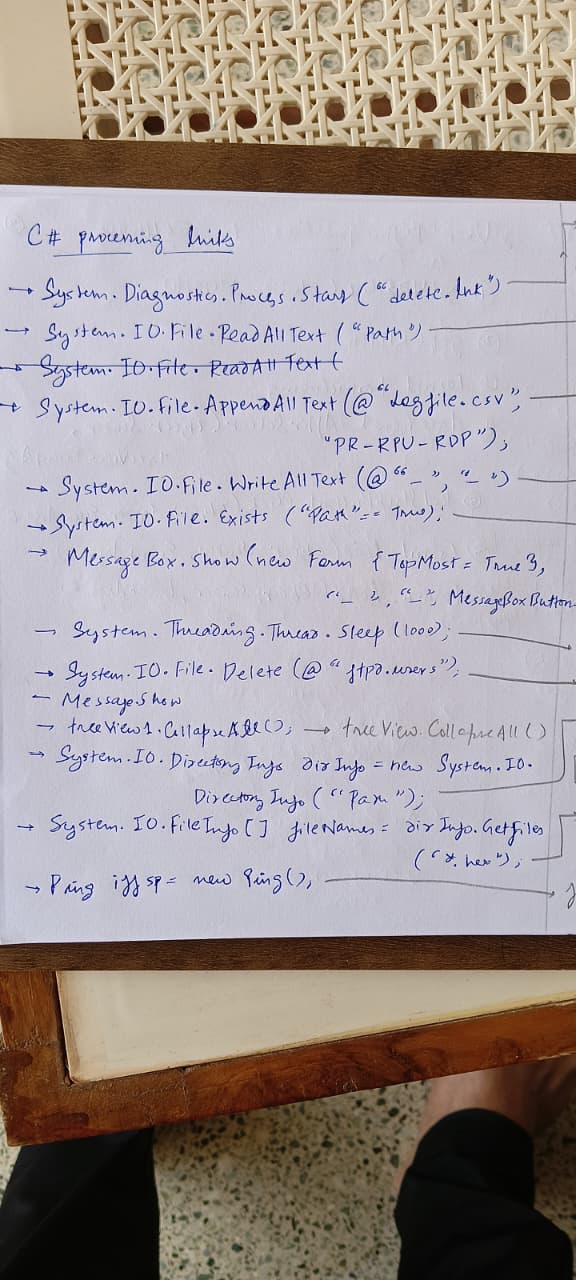 C# processing links
→ System.Diagnostics.Process.Start("delete.lnk")
→ System.IO.File.ReadAllText("Path")
→ System.IO.File.ReadAllText(
→ System.IO.File.AppendAllText(@"Logfile.csv",
"PR-RPU-RDP");
→ System.IO.File.WriteAllText(@"_", "_")
→ System.IO.File.Exists("Path"== True);
→ MessageBox.Show(new Form {TopMost = True},
"_", "_", MessageBoxButton
→ System.Threading.Thread.Sleep(1000);
→ System.IO.File.Delete(@"ftpd.users");
— Message.Show
→ treeView1.CollapseAll(); → treeView.CollapseAll()
→ System.IO.DirectoryInfo dirInfo = new System.IO.
DirectoryInfo("Path");
→ System.IO.FileInfo[] fileNames = dirInfo.Getfiles
("*.hex");
→ Ping = new Ping();